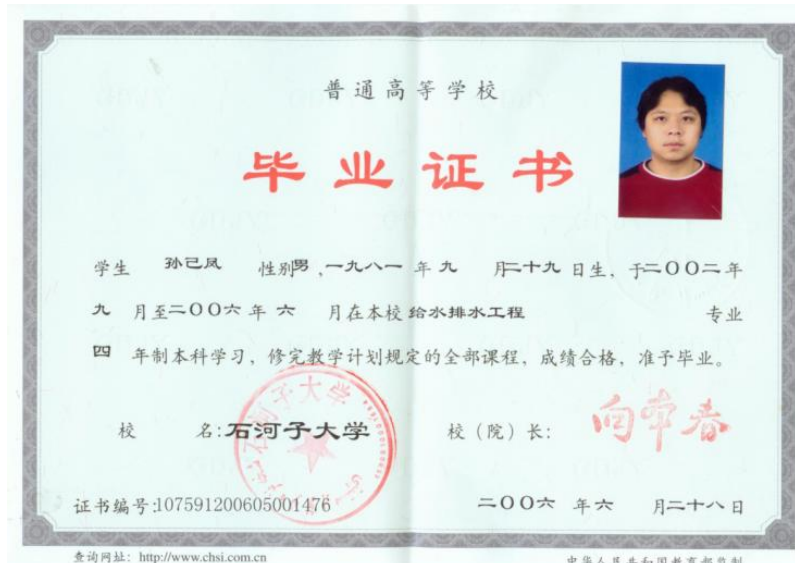 普通高等学校
毕业证书
学生 孙己凤 性别男，一九八一年九月二十九日生，于二〇〇二年
九月至二〇〇六年六月在本校给水排水工程 专业
四年制本科学习，修完教学计划规定的全部课程，成绩合格，准予毕业。
校 名：石河子大学 校（院）长：向本春
证书编号：107591200605001476 二〇〇六年六月二十八日
查询网址：http://www.chsi.com.cn 中华人民共和国教育部监制